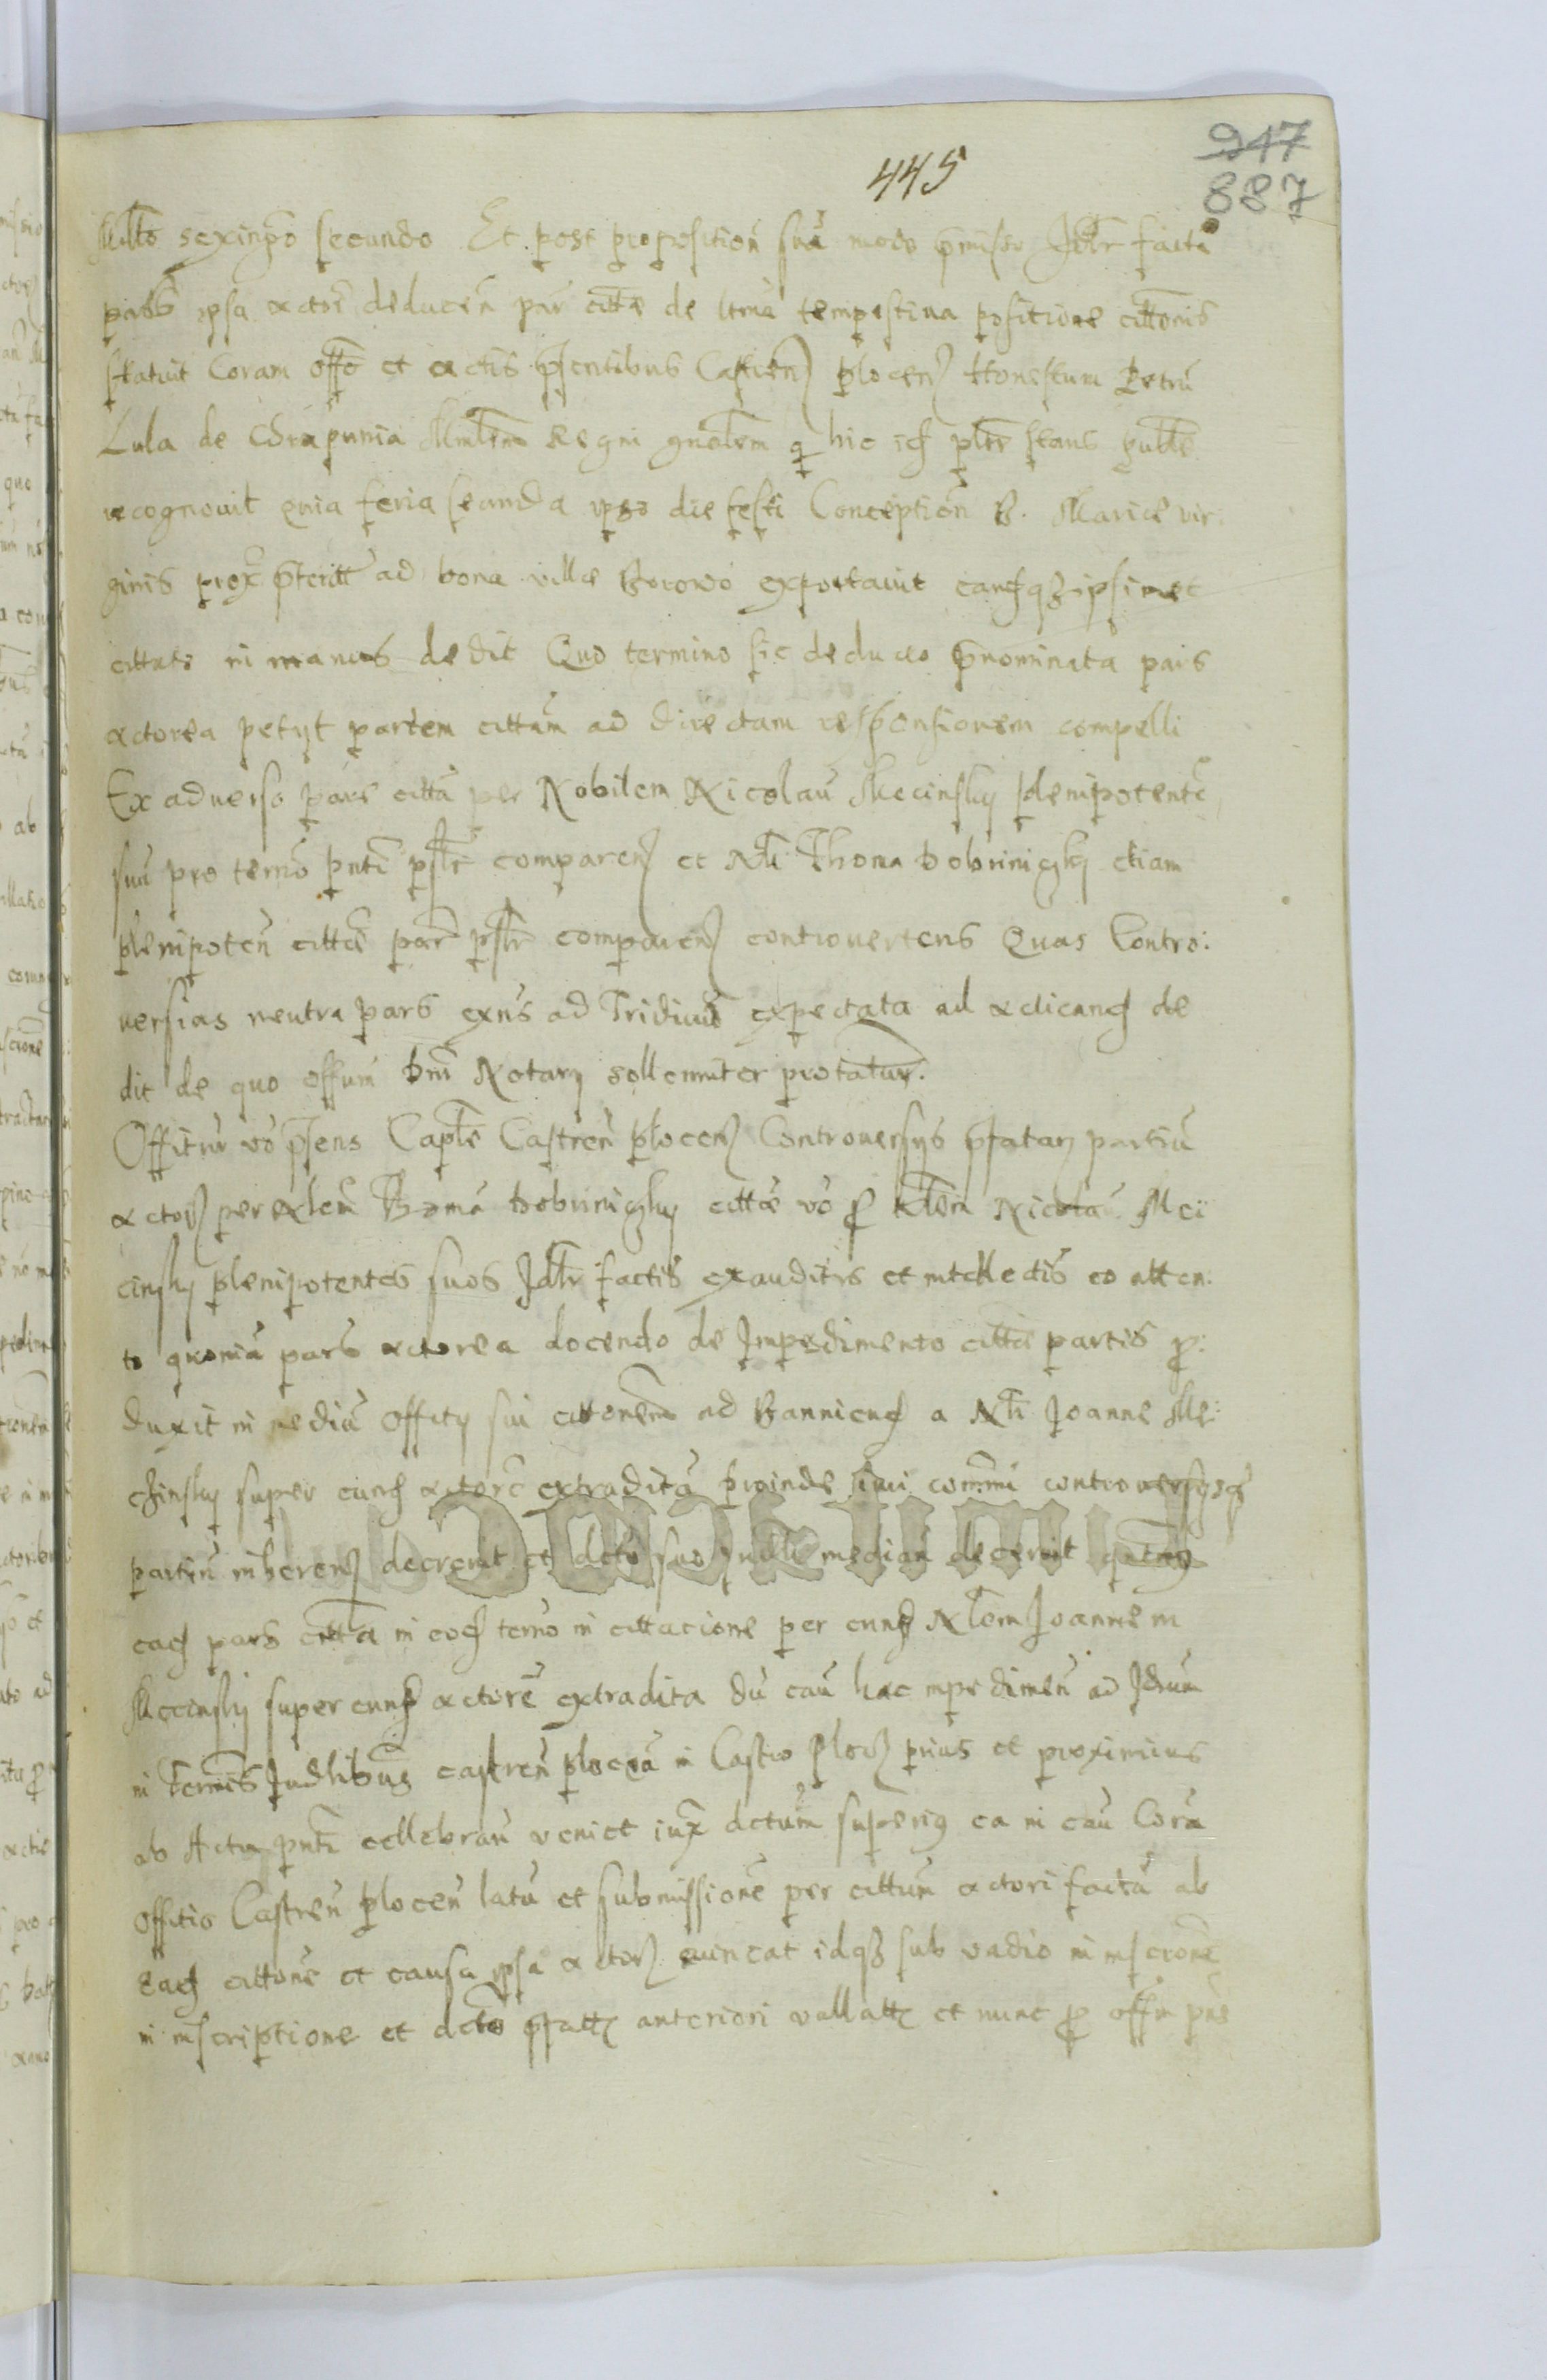 445
947
887
Millo sexingo secundo Et post proposition suā modo pmisso Jdlr facta
parte ipsa actore deducen par citte de ltma tempestiua positione cittonis
statuit Coram offo et actis psentibus Castren plocen Honestum Petrū
Lula de Chrapunia Mnlem Regni gnalem q hic ich pltr stans publce
recognouit quia feria secunda ipso die festi Conception B. Mariæ vir
ginis prox pterit ad bona villæ Borowo exportauit eandqz ipsimet
cittato in manus dedit Quo termino sic deducto pnominata pars
actorea petyt partem cittam ad directam responsionem compelli
Ex aduerso pars citta per Nobilem Nicolaū Mecinsky plenipotente
suū pro termo pnti pslr comparen et Nli Thoma Dobrinigky etiam
plenipoten cittæ par pslr comparen controuertens Quas Contro:
uersias neutra pars exns ad Tridiuū expectata ad acticand de
dit de quo offum dni Notary sollenniter protatur.
Offitiū vo psens Caple Castren plocen Controuersys pfatar partiū
actor per Nlem Thomā Dobrinigky cittæ vo p Nlem Nicolaū Meci
cinsky plenipotentes suos Jdlr factis exauditis et intellectis eo atten:
to quoniā pars actorea docendo de Impedimento cittæ partis p:
duxit in mediū offity sui cittonem ad Banniend a Nli Joanne Me:
chinsky super eund actore extraditā proinde sui commi controuersysq
partiū inheren decreuit et dcto suo mediān decernit qtnus
ead pars citta in eod termo in cittacione per eund Nlem Joannem
Mecinsky super eund actore extradita dū cau hac impedimen ad Jdium
in Termis Judlibus castren plocen in Castro Plocn prius et proximius
ab Actu pnti cellebran veniet iux dctum superius ea in cau Corā
offitio Castren plocen latū et submissione per cittum actori factā ab
ead cittone et causa ipsa actor euincat idqz sub vadio in inscrone
in inscriptione et dcto pfatt anteriori vallatt et nunc p offm pns